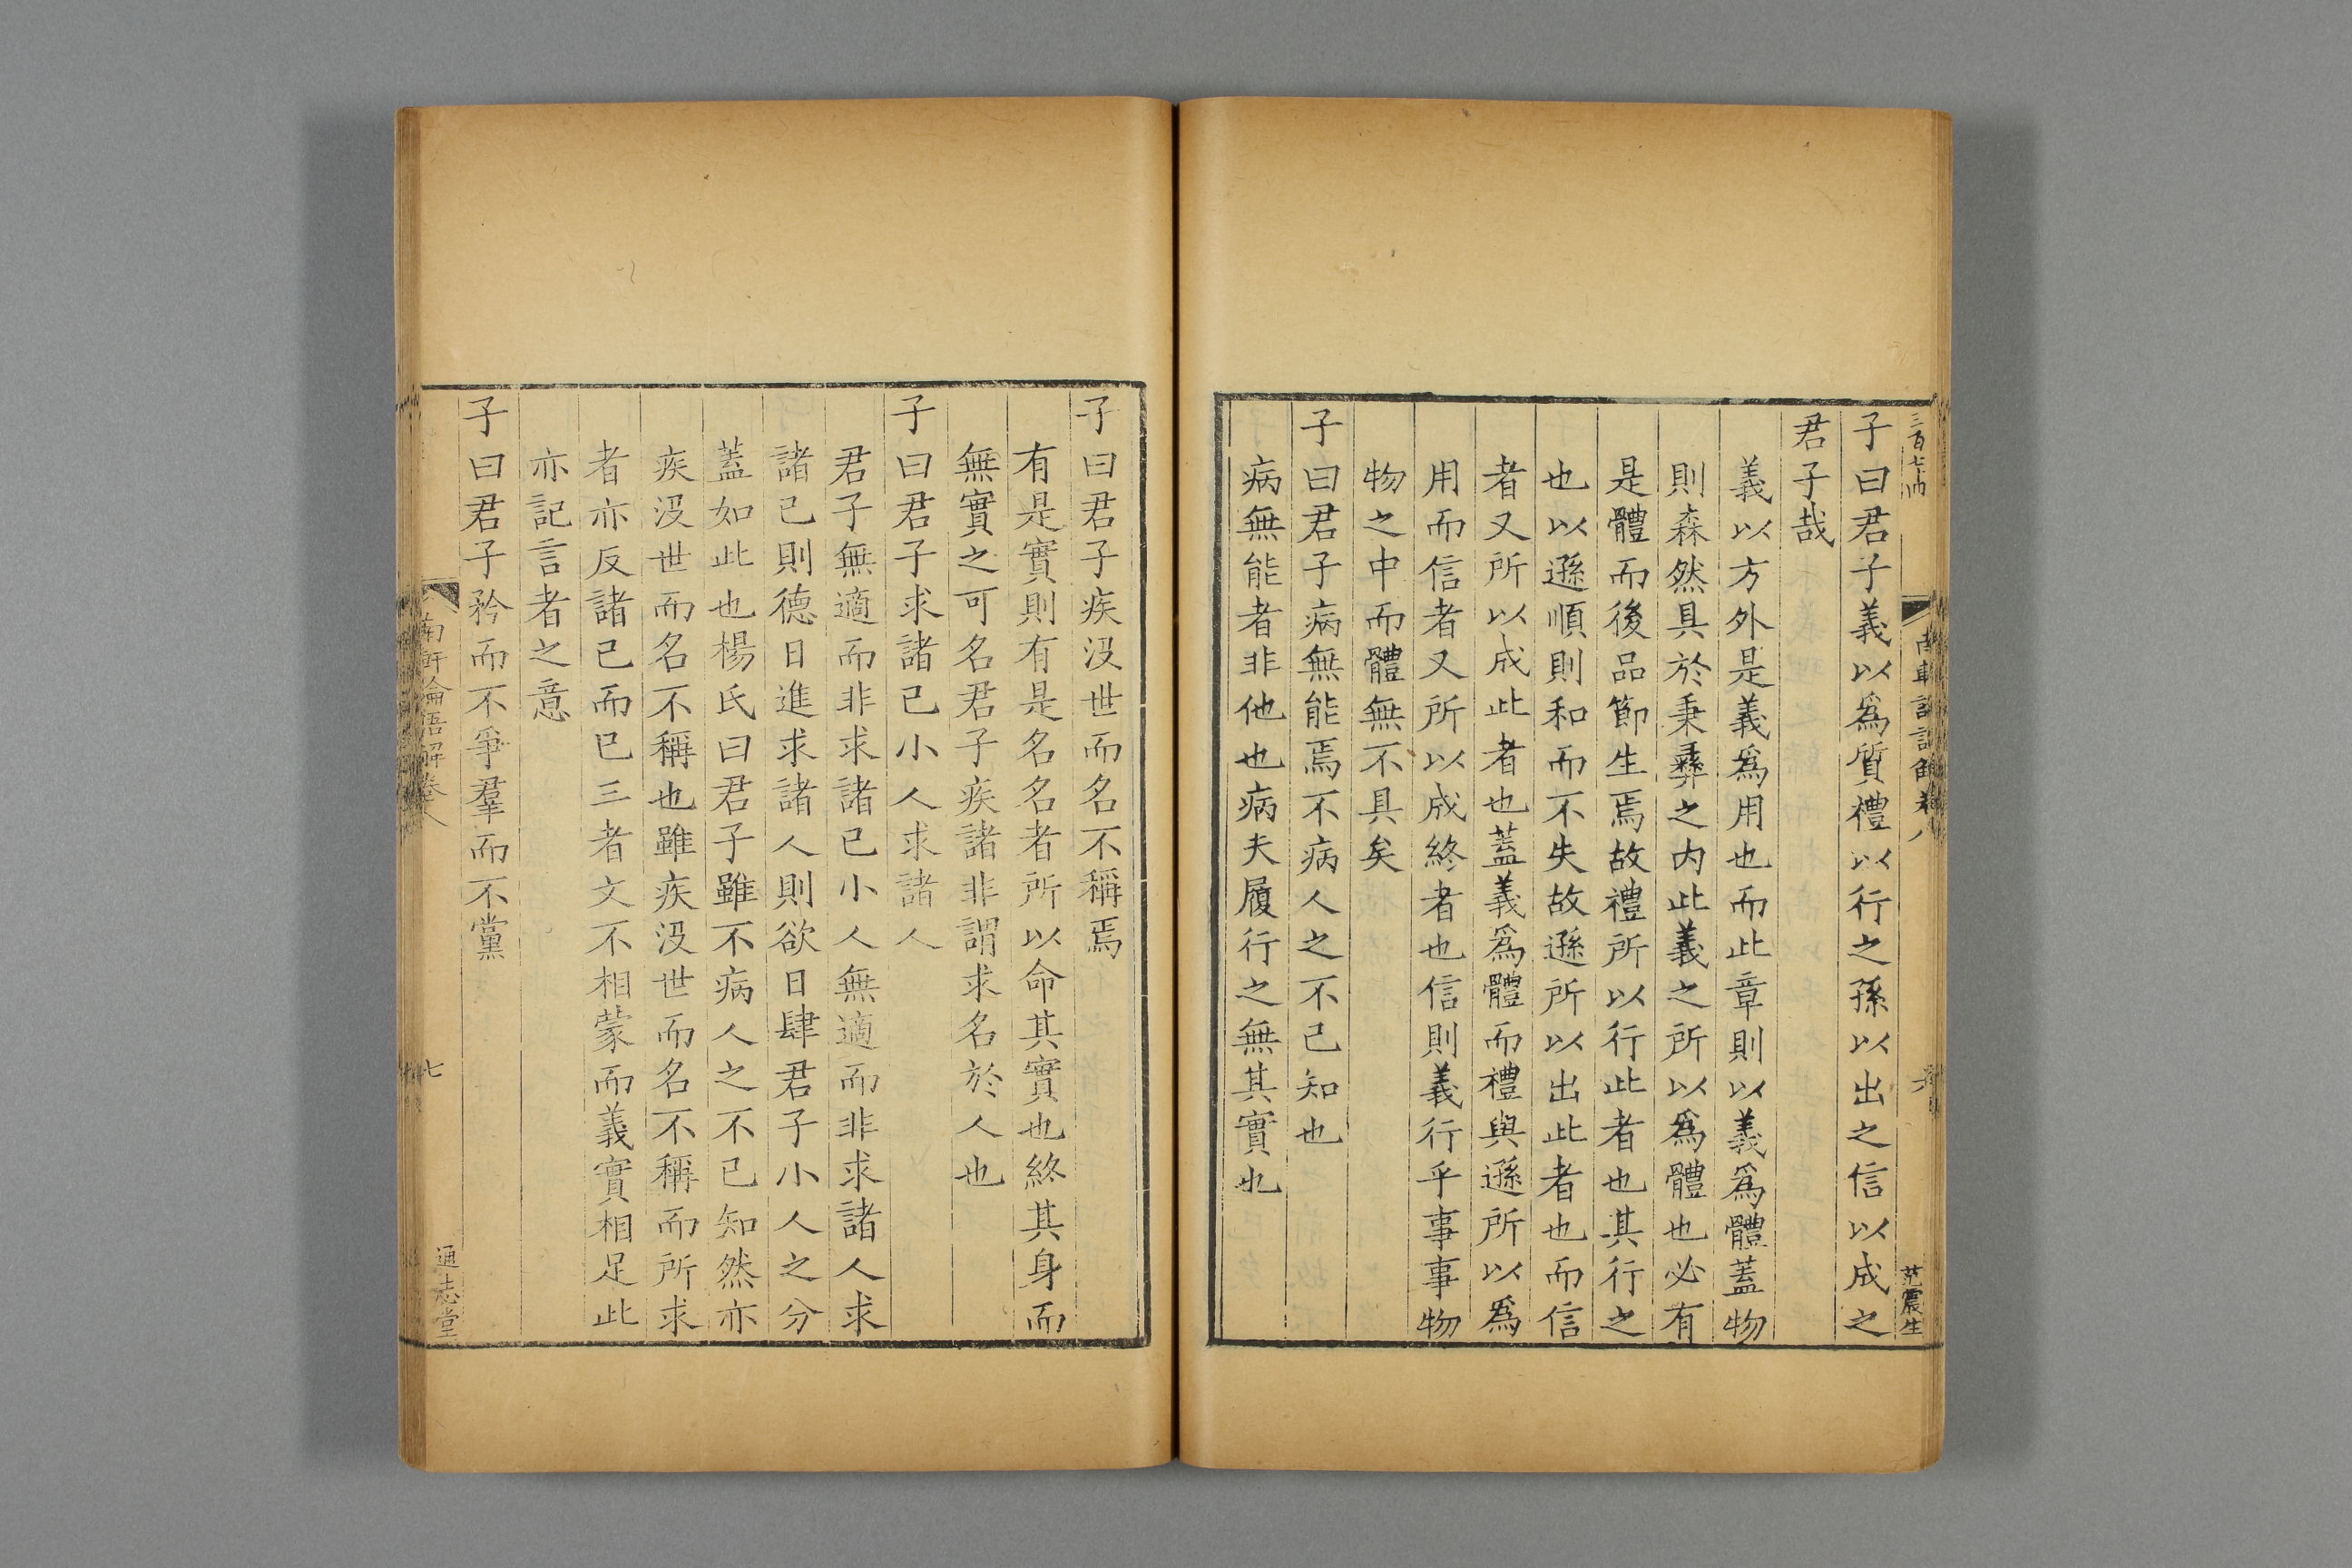 子曰君子義以爲質禮以行之孫以出之信以成之
君子哉
義以方外是義爲用也而此章則以義爲體蓋物
則森然具於秉彝之内此義之所以爲體也必有
是體而後品節生焉故禮所以行此者也其行之
也以遜順則和而不失故遜所以出此者也而信
者又所以成此者也蓋義爲體而禮與遜所以爲
用而信者又所以成終者也信則義行乎事事物
物之中而體無不具矣
子曰君子病無能焉不病人之不已知也
病無能者非他也病夫履行之無其實也
范震生
子曰君子疾没世而名不稱焉
有是實則有是名名者所以命其實也終其身而
無實之可名君子疾諸非謂求名於人也
子曰君子求諸已小人求諸人
君子無適而非求諸已小人無適而非求諸人求
諸已則德日進求諸人則欲日肆君子小人之分
蓋如此也楊氏曰君子雖不病人之不已知然亦
疾没世而名不稱也雖疾没世而名不稱而所求
者亦反諸已而已三者文不相蒙而義實相足此
亦記言者之意
子曰君子矜而不爭羣而不黨
南軒論語解卷八
七
通志堂